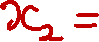 x₂ =